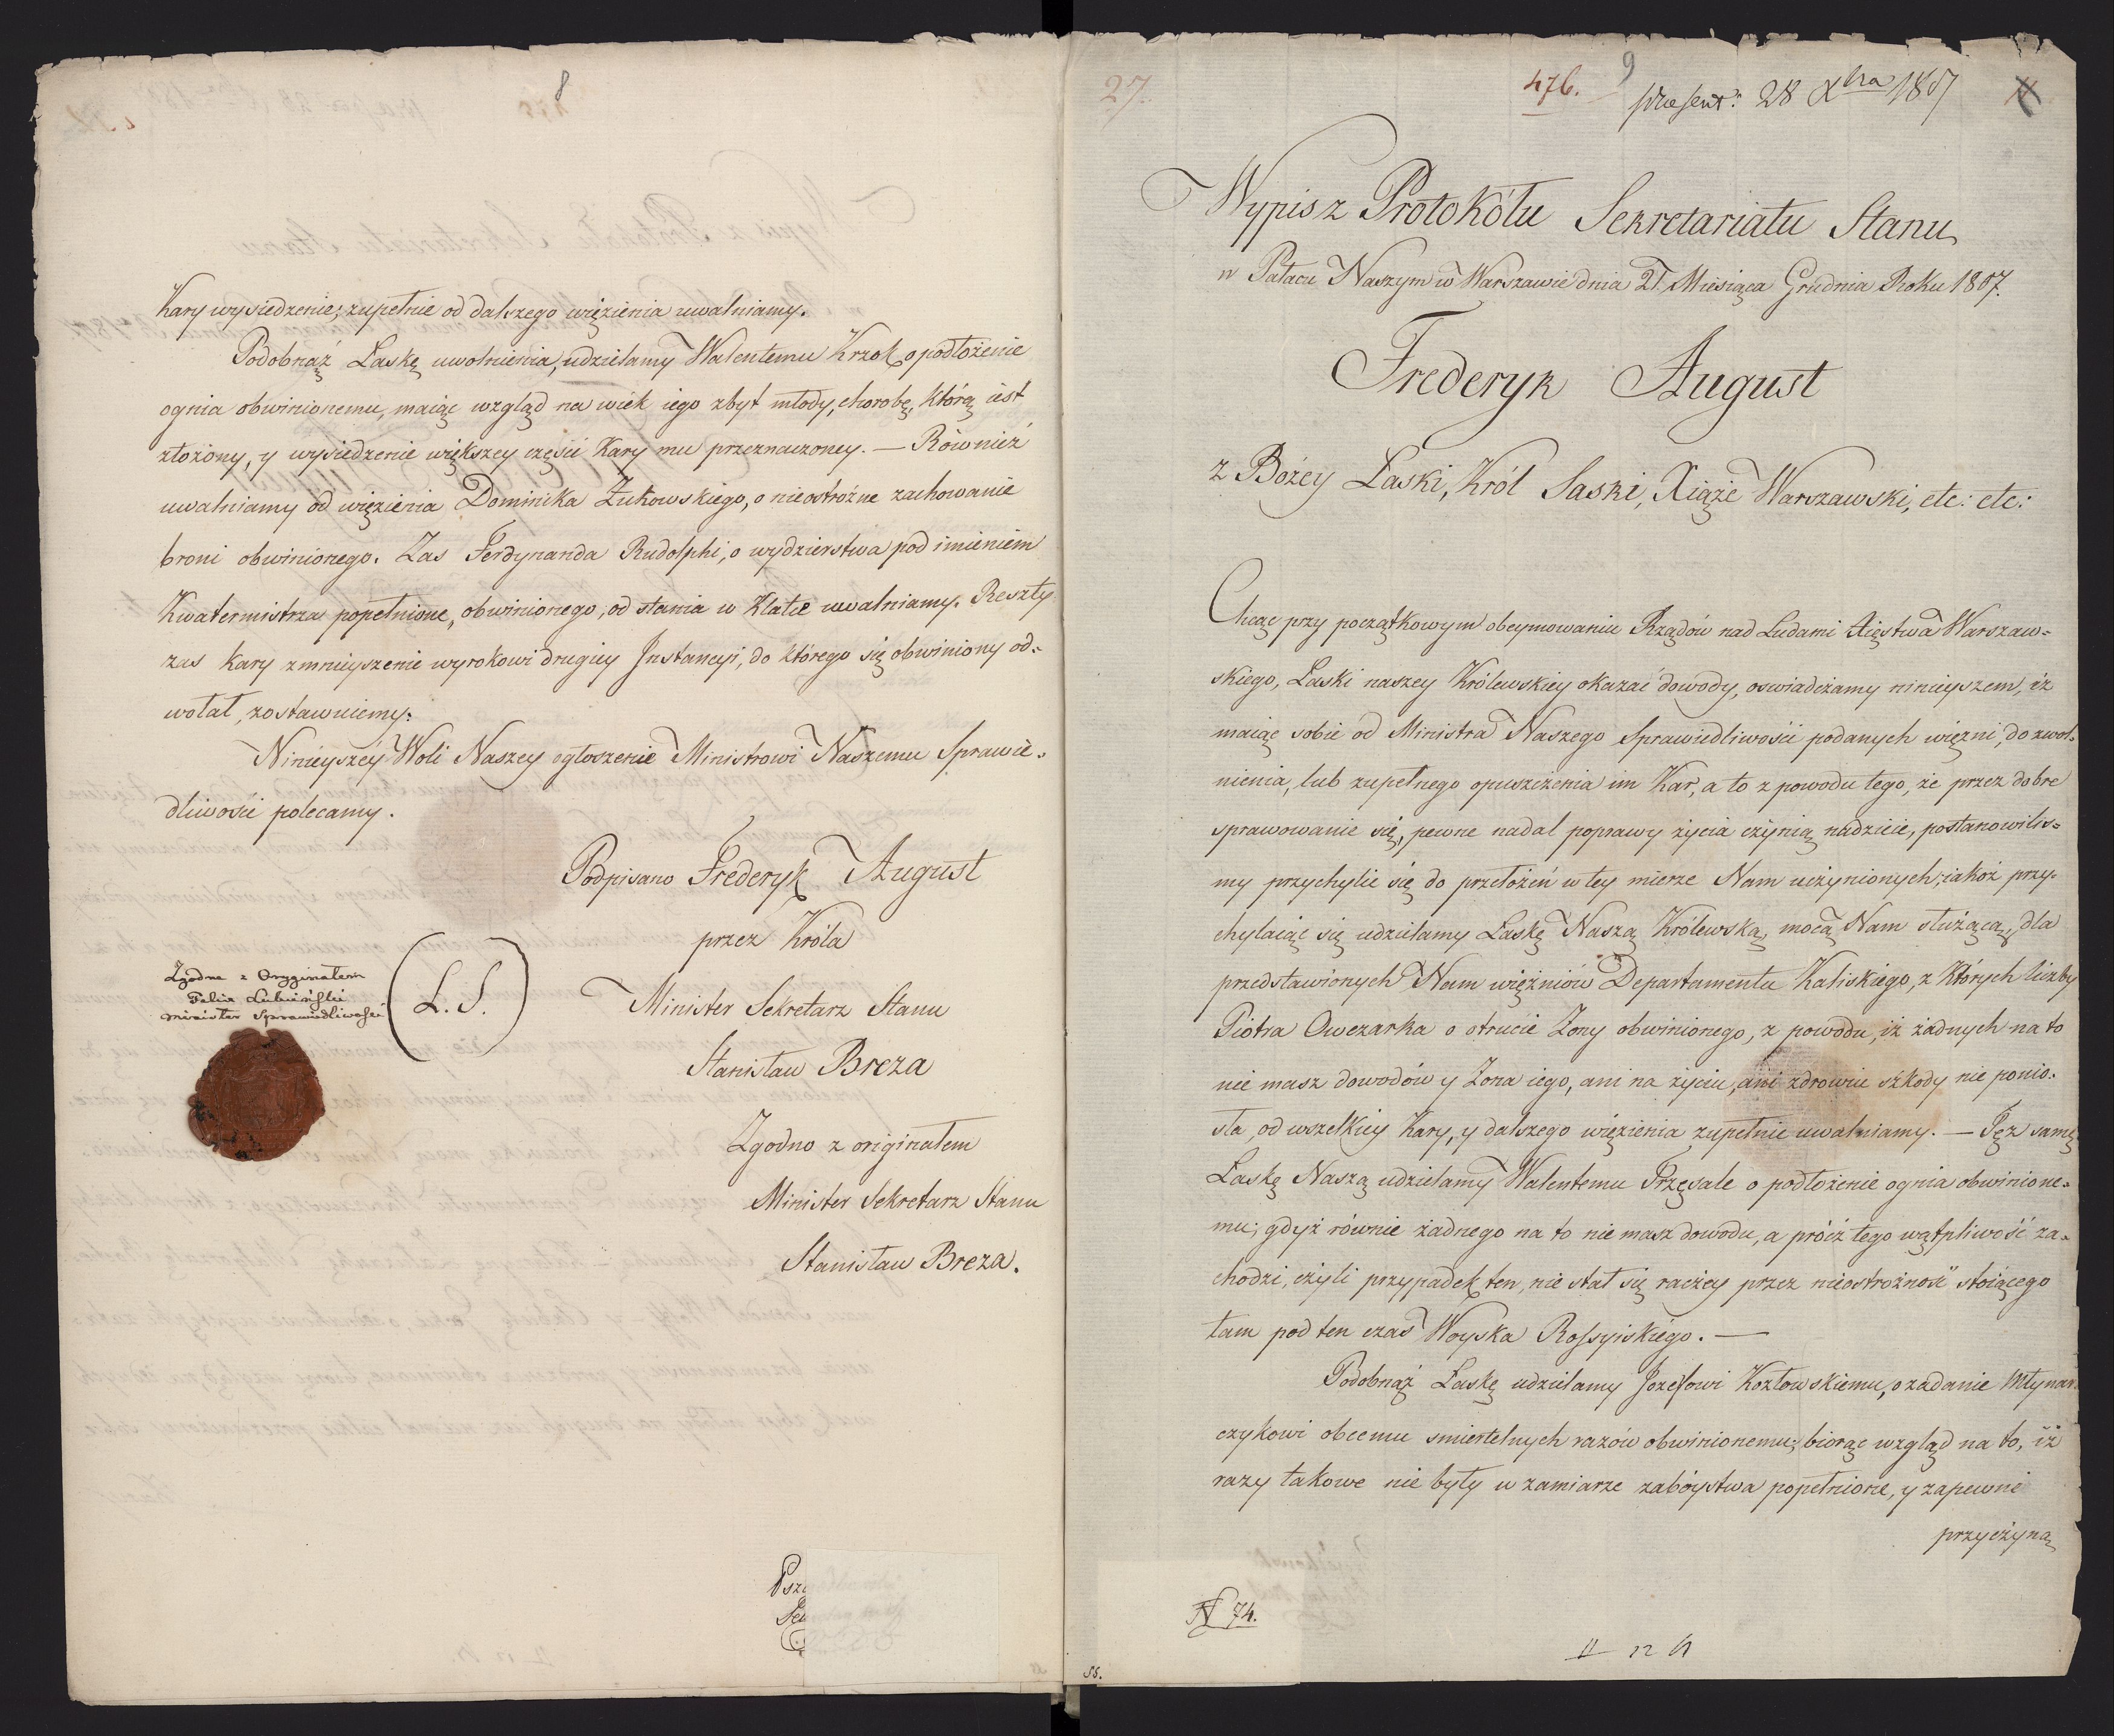 8
Kary wysiedzenie; zupełnie od dalszego więzienia uwalniamy.
Podobnąż Łaskę uwolnienia, udzielamy Walentemu Krzok o podłożenie
ognia obwinionemu, maiąc wzgląd na wiek iego zbyt młody, chorobę, którą iest
złożony, y wysiedzenie większey części Kary mu przeznaczoney. — Również
uwalniamy od więzienia Dominika Żukowskiego, o nieostrożne zachowanie
broni obwinionego. Zas Ferdynanda Rudolphi, o wydzierstwa pod imieniem
Kwatermistrza popełnione, obwinionego, od stania w Klatce uwalniamy. Reszty
zas Kary zmnieyszenie wyrokowi drugiey Instancyi, do którego się obwiniony od-
wołał, zostawuiemy.
Ninieyszéy Woli Naszey ogłoszenie Ministrowi Naszemu Sprawie-
dliwości polecamy.
Podpisano Frederyk August
przez Króla
Minister Sekretarz Stanu
Stanisław Breza
(L. S.)
Zgodno z Oryginałem
Felix Lubieński
Minister Sprawiedliwości
Zgodno z originałem
Minister Sekretarz Stanu
Stanisław Breza.
27.
476.
9
præsent: 28 Xbra 1807
Wypis z Protokółu Sekretariatu Stanu
w Pałacu Naszym w Warszawie dnia 21. Miesiąca Grudnia Roku 1807.
Frederyk August
z Bożey Łaski, Król Saski, Xiąże Warszawski, etc: etc:
Chcąc przy początkowym obeymowaniu Rządów nad Ludami Xięstwa Warszaw-
skiego, Łaski naszey Królewskiey okazać dowody, oswiadczamy ninieyszem, iż
maiąc sobie od Ministra Naszego Sprawiedliwości podanych więzni, do zwol-
nienia, lub zupełnego opuszczenia im Kar, a to z powodu tego, że przez dobre
sprawowanie się, pewne nadal poprawy życia czynią nadzieie, postanowilis-
my przychylic się do przełożeń w tey mierze Nam uczynionych; iakoż przy-
chylaiąc się udzielamy Łaskę Naszą Królewską, mocą Nam służącą, dla
przedstawionych Nam więźniów Departamentu Kaliskiego, z których liczby
Piotra Owczarka o otrucie Żony obwinionego, z powodu, iż żadnych na to
nie masz dowodów y Żona iego, ani na życiu, ani zdrowiu szkody nie ponio-
sła, od wszelkiey Kary, y dalszego więzienia zupełnie uwalniamy. — Tęż samę
Łaskę Naszą udzielamy Walentemu Przęsale o podłożenie ognia obwinione-
mu; gdyż równie żadnego na to nie masz dowodu, a prócz tego wątpliwość za-
chodzi, czyli przypadek ten, nie stał się raczey przez nieostrożność stoiącego
tam pod ten czas Woyska Rossyiskiego. —
Podobnąż Łaskę udzielamy Jozefowi Kozłowskiemu, o zadanie Młynar-
czykowi obcemu smiertelnych razów obwinionemu; biorąc wzgląd na to, iż
razy takowe nie były w zamiarze zabóystwa popełnione, y zapewne
przyczyną
N 74.
58.